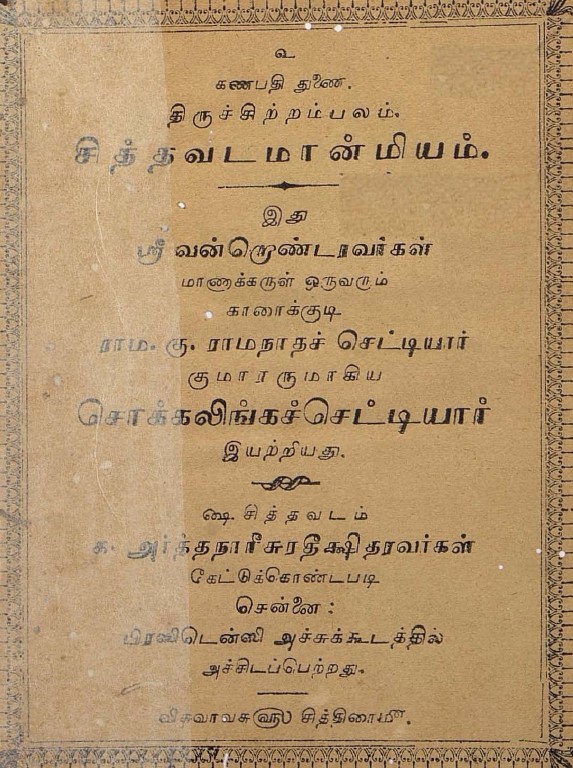 உ
கணபதி துணை.
திருச்சிற்றம்பலம்.
சித்தவடமான்மியம்.
இது
ஸ்ரீ வன்றொண்டரவர்கள்
மாணாக்கருள் ஒருவரும்
காரைக்குடி
ராம. கு. ராமநாதச் செட்டியார்
குமாரருமாகிய
சொக்கலிங்கச்செட்டியார்
இயற்றியது.
௸ சித்தவடம்
க. அர்த்தநாரீசுரதீக்ஷிதரவர்கள்
கேட்டுக்கொண்டபடி
சென்னை:
பிரஸிடென்ஸி அச்சுக்கூடத்தில்
அச்சிடப்பெற்றது.
விசுவாவசு௵ சித்திரை௴.